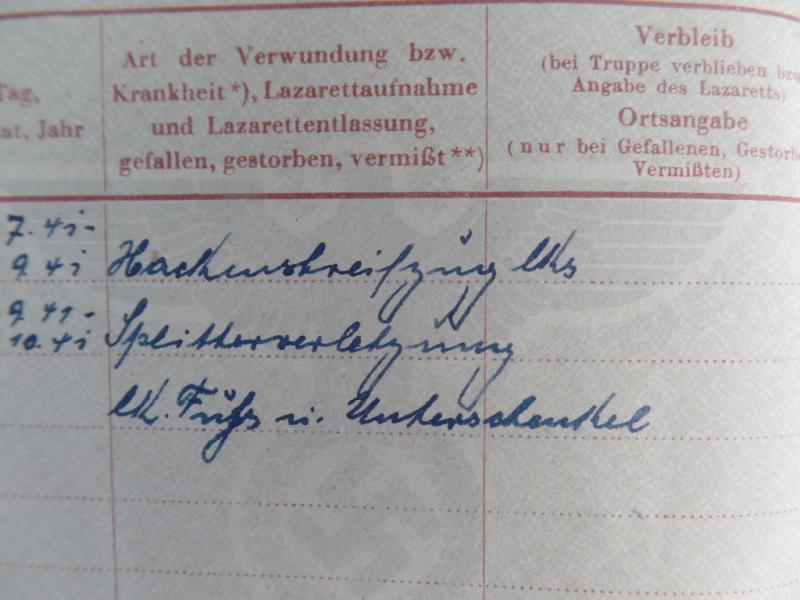 Tag,
at, Jahr
Art der Verwundung bzw.
Krankheit*), Lazarettaufnahme
und Lazarettentlassung,
gefallen, gestorben, vermißt**)
Verbleib
(bei Truppe verblieben bzw.
Angabe des Lazaretts)
Ortsangabe
(nur bei Gefallenen, Gestorbe
Vermißten)
7. 41 -
9 41 Hackenstreifzüg lks
9 41 -
10. 41 Splitterverletzung
lk. Fuß u. Unterschenkel